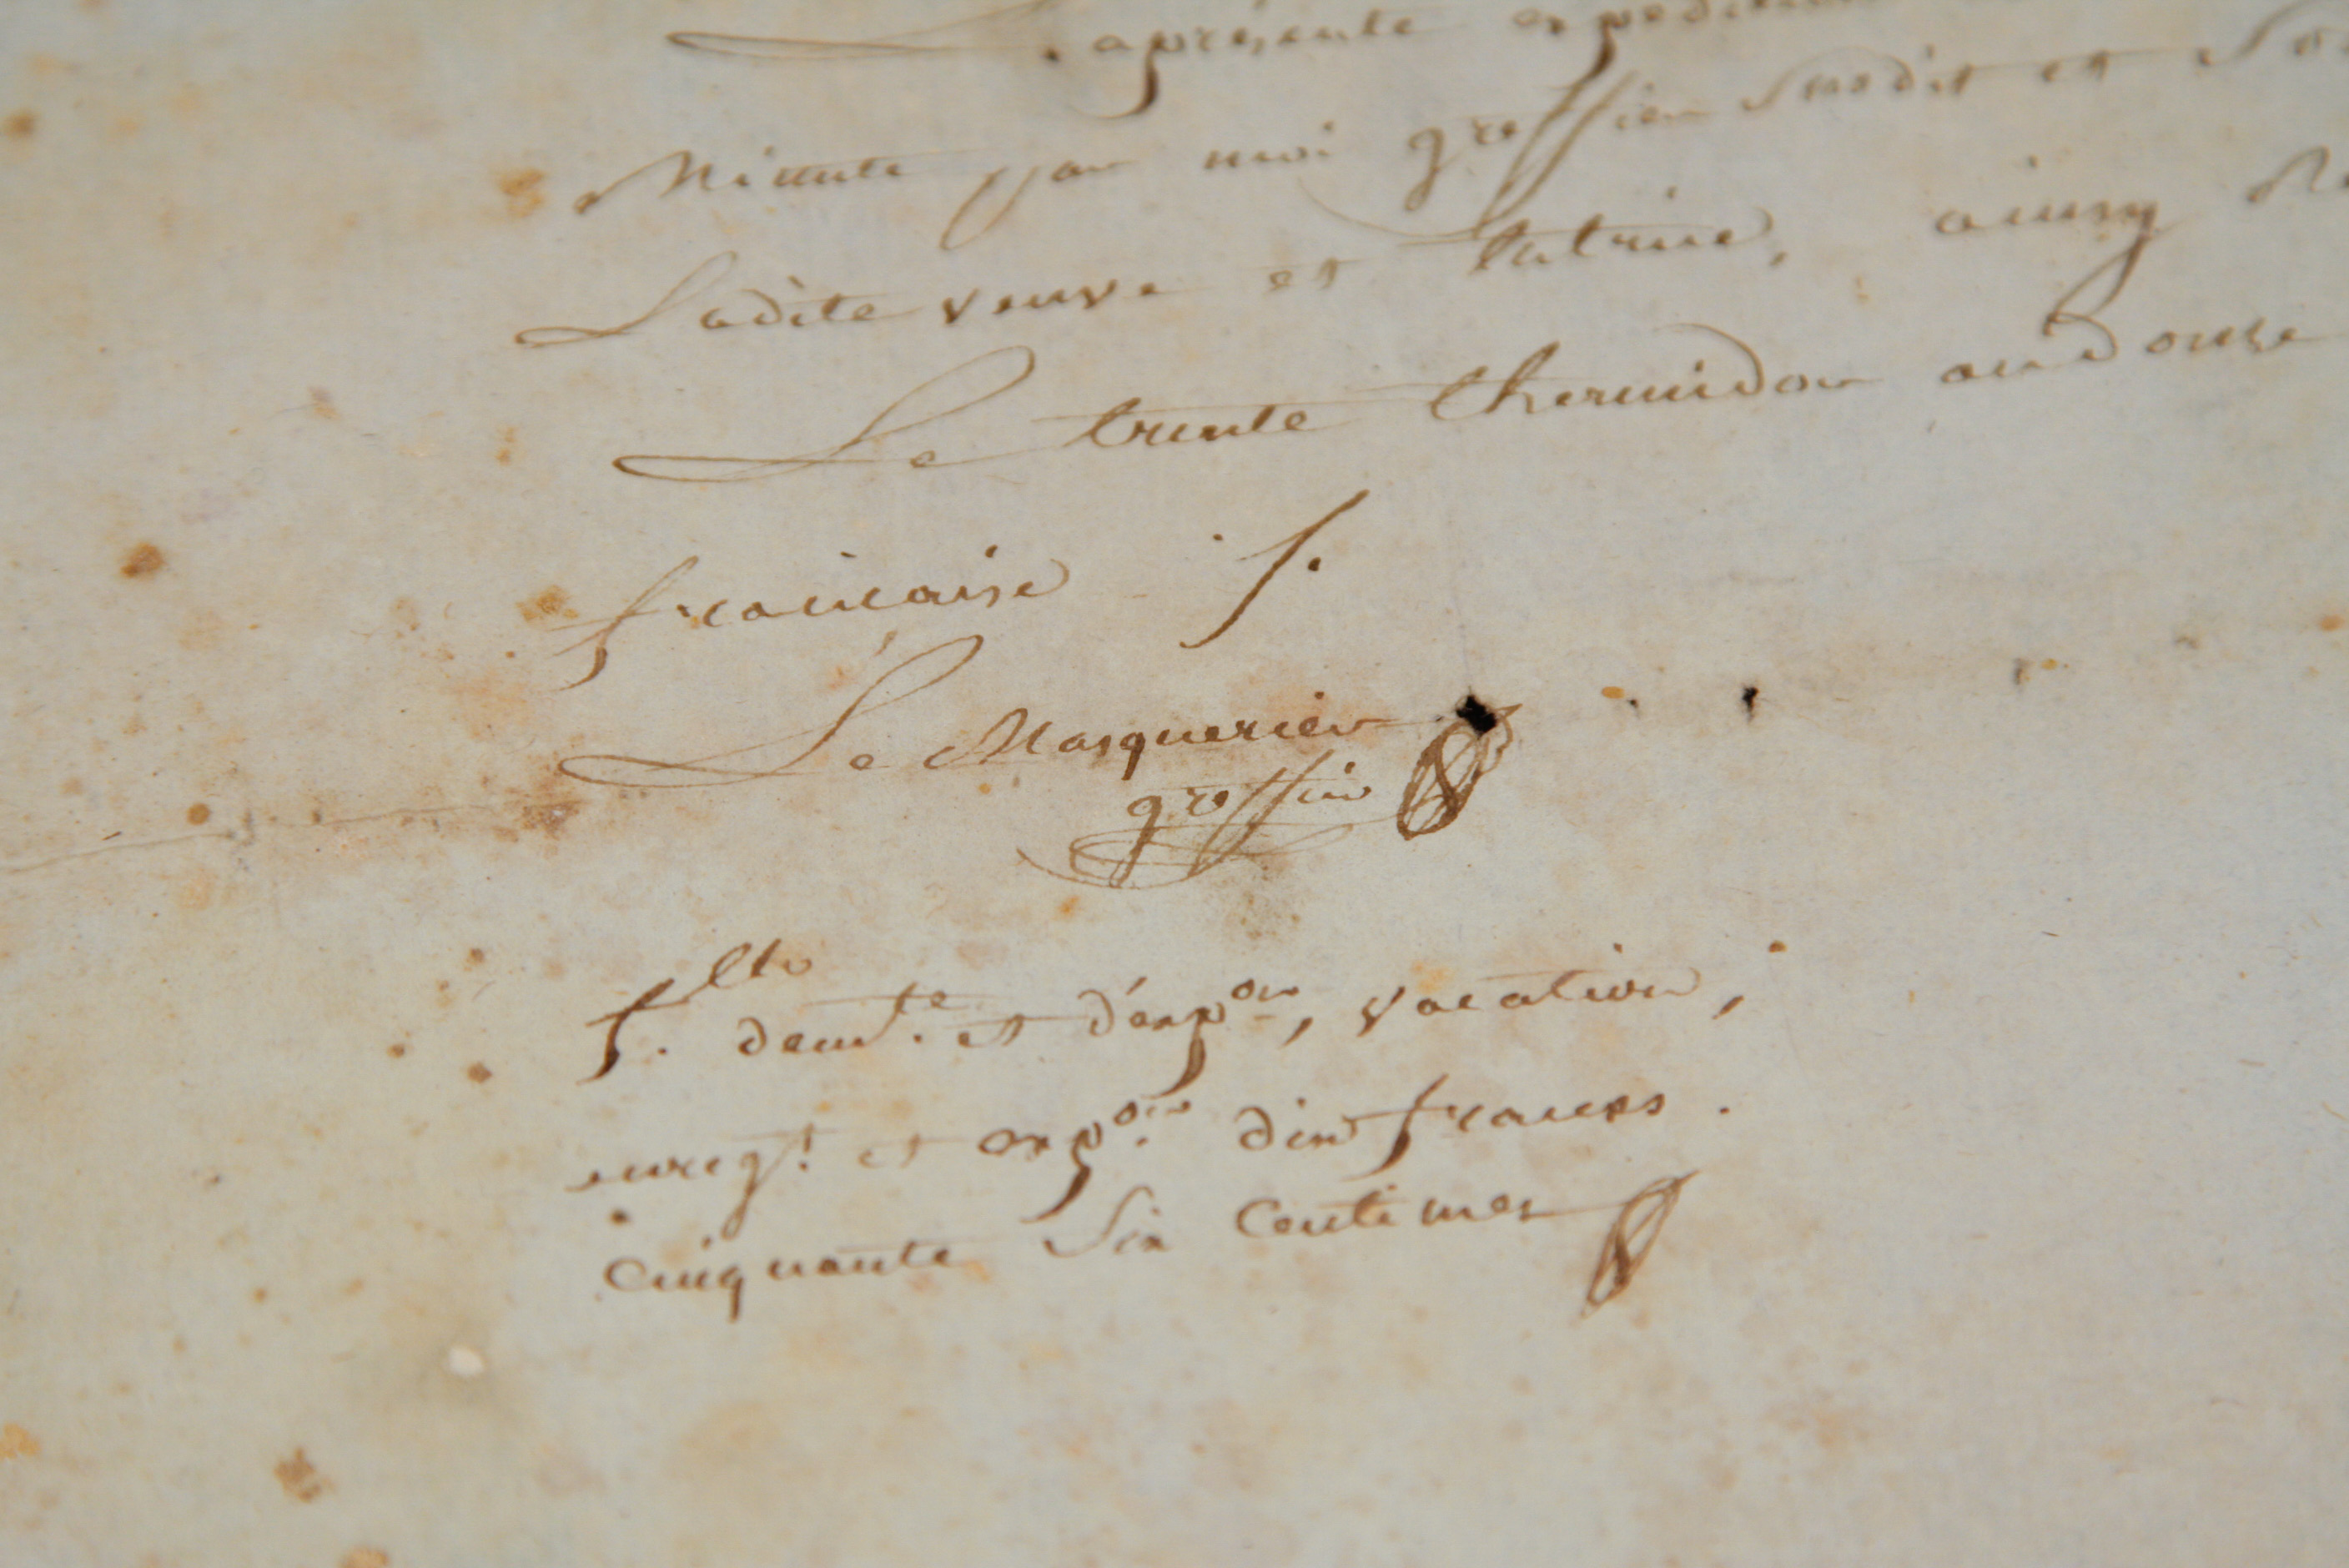 La présente expédition
Minute par moi greffier susdit et
Ladite veuve et tutrice, ainsy
Le trente thermidor an douze
française /.
Le Masquerier
greffier
demte. et d'expon, vacation,
enregt. et expon. dix francs.
cinquante six centimes